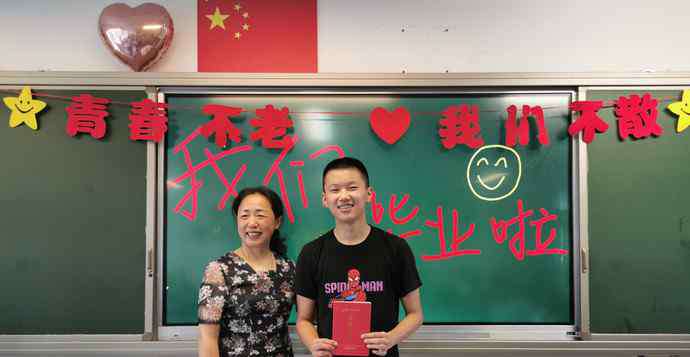 青春不老 我们不散
我们毕业啦
SPIDER-MAN